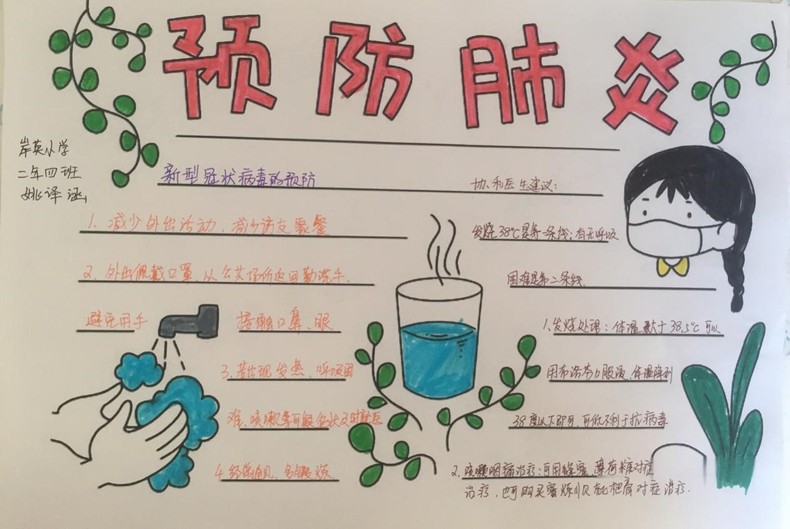 预防肺炎
岸英小学
二年四班
姚译涵
新型冠状病毒的预防
1. 减少外出活动，减少访友聚餐
2. 外出佩戴口罩，从公共场所返回勤洗手
避免用手 接触口鼻、眼
3. 若出现发热、呼吸困
难、咳嗽等可能症状及时就医
4. 经常开风、多
协和医生建议：
发烧38℃是第一条线；有无呼吸
困难是第二条线
1. 发烧处理：体温大于38.5℃可以
用布洛芬口服液，体温降到
38度以下即可，可能不利于抗病毒
2. 咳嗽咽痛治疗：可用
治疗，也可购买蜜炼川贝枇杷膏对症治疗.